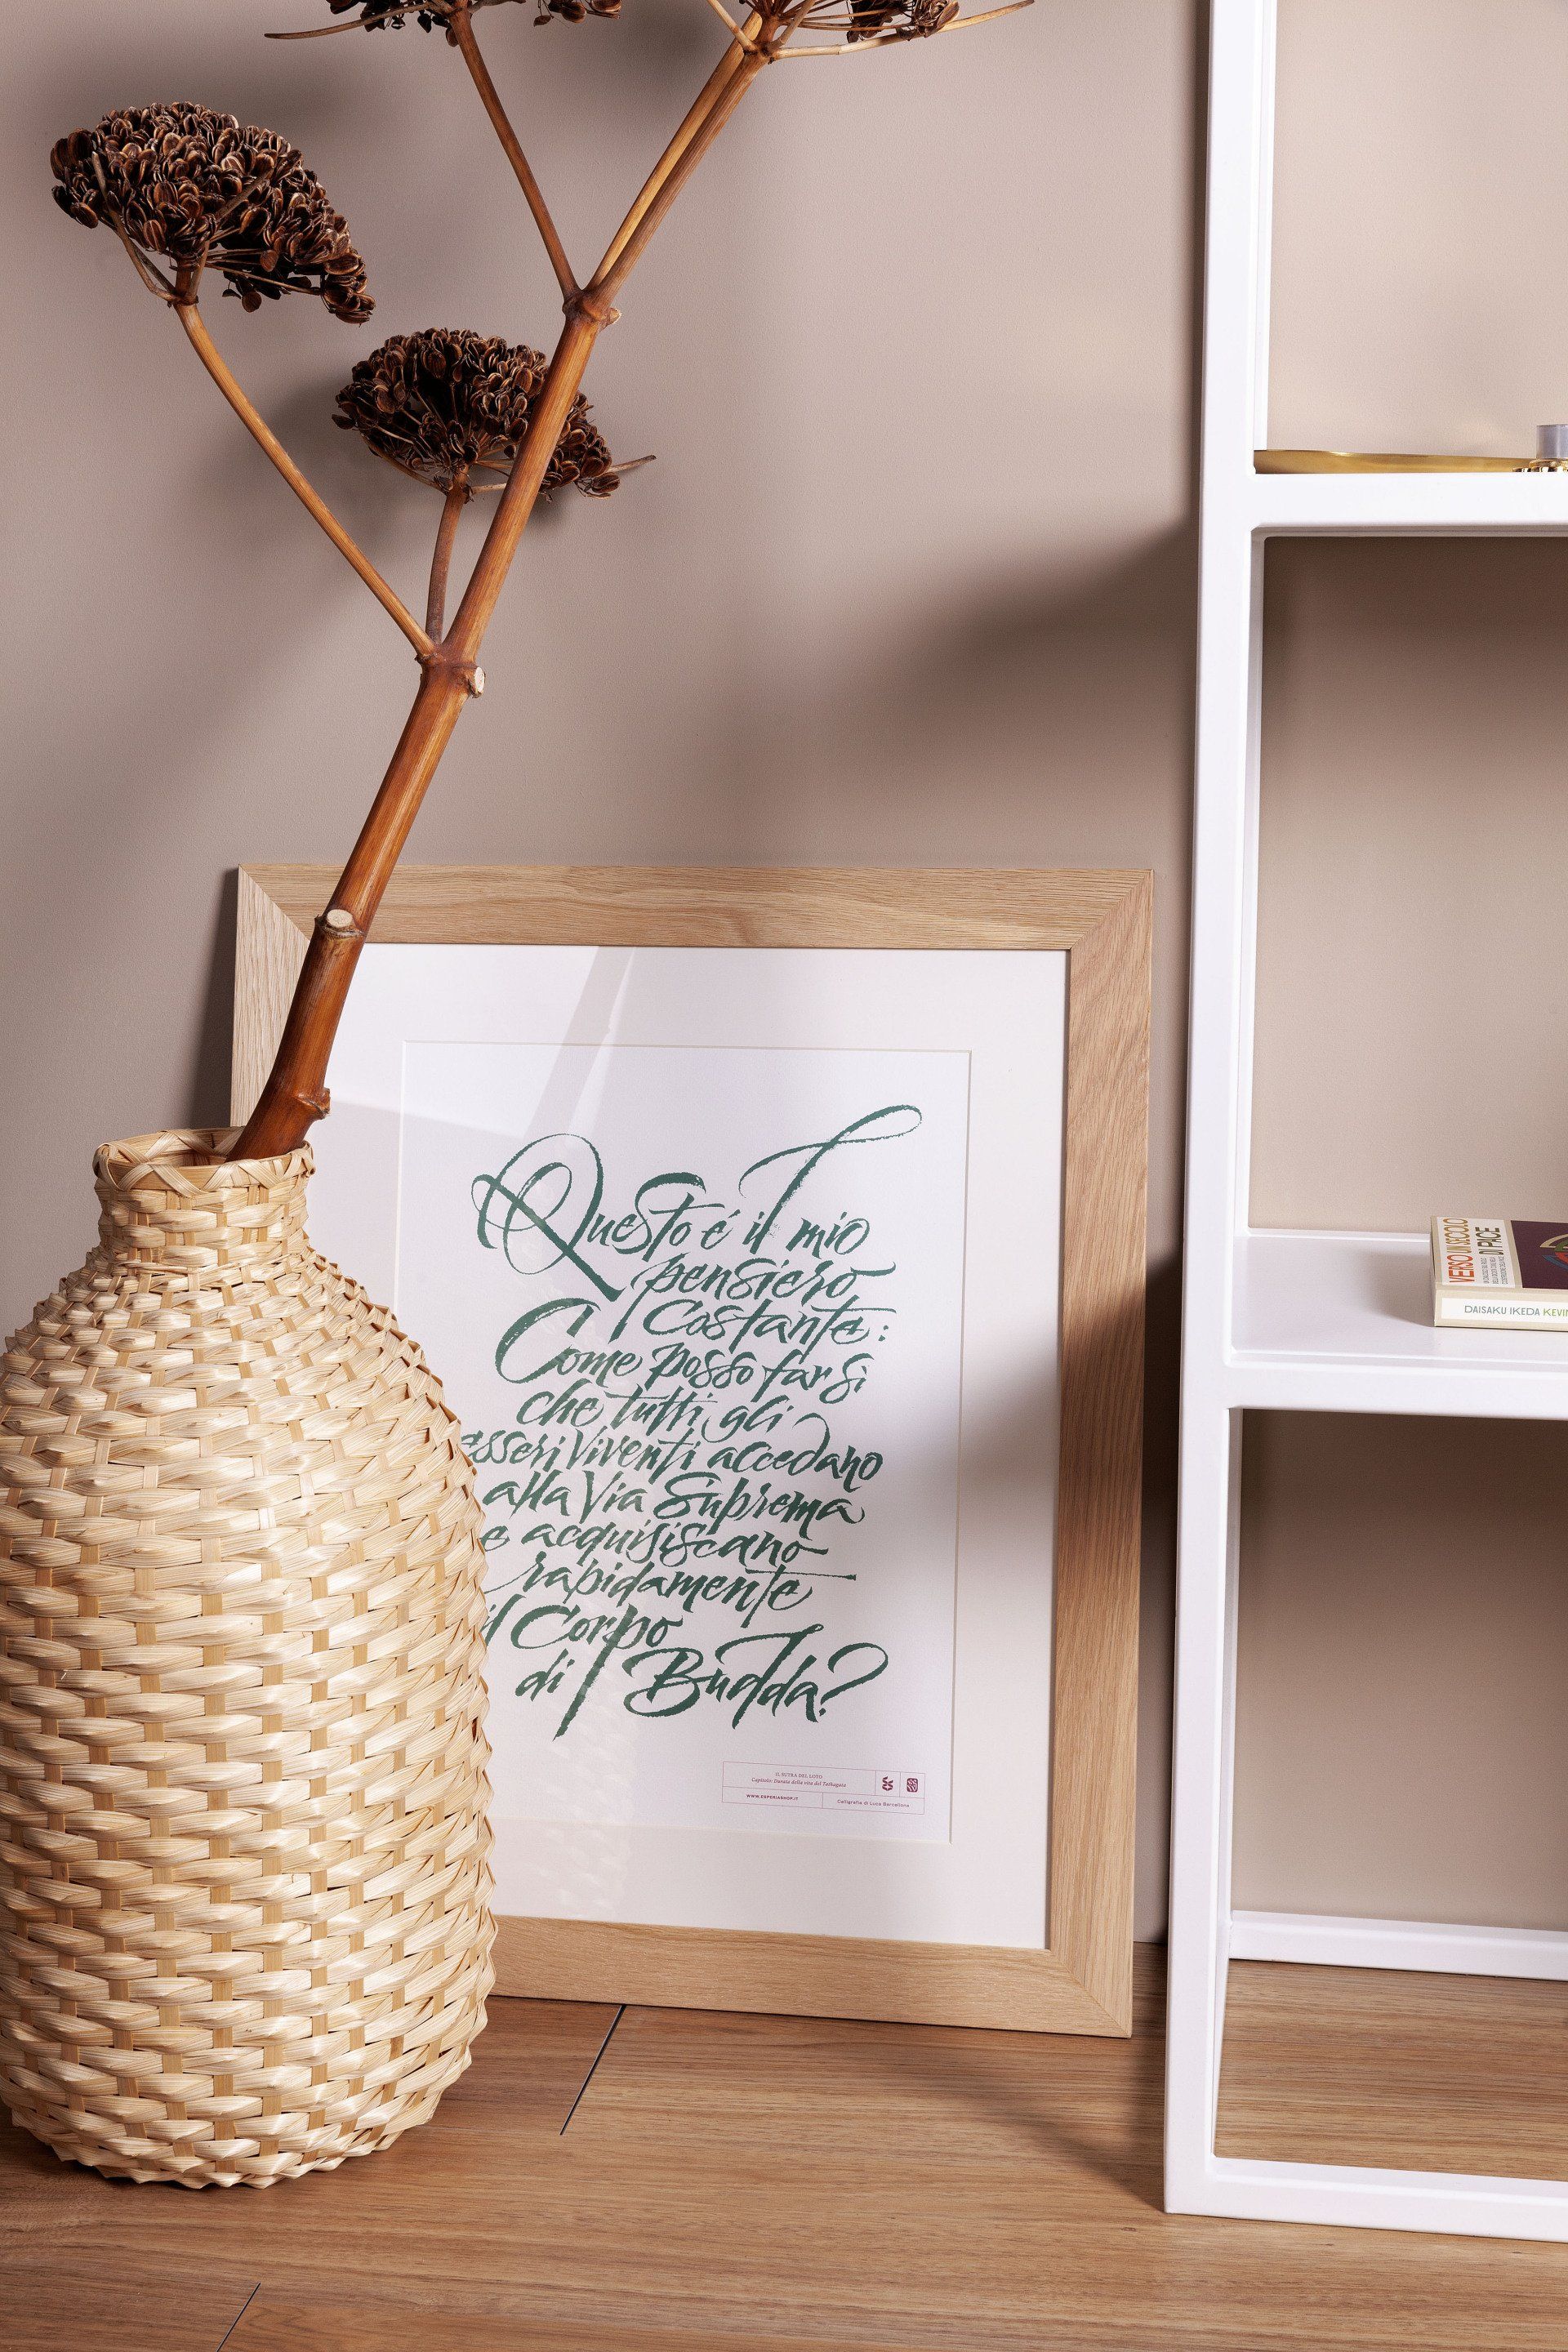 Questo é il mio
pensiero
Costante:
Come posso far sì
che tutti gli
esseri Viventi accedano
alla Via Suprema
e acquisiscano
rapidamente
il Corpo
di Budda?
IL SUTRA DEL LOTO
Capitolo: Durata della vita del Tathagata
WWW.ESPERIASHOP.IT
Calligrafia di Luca Barcellona
VERSO UN SECOLO
DI PACE
DAISAKU IKEDA KEVIN